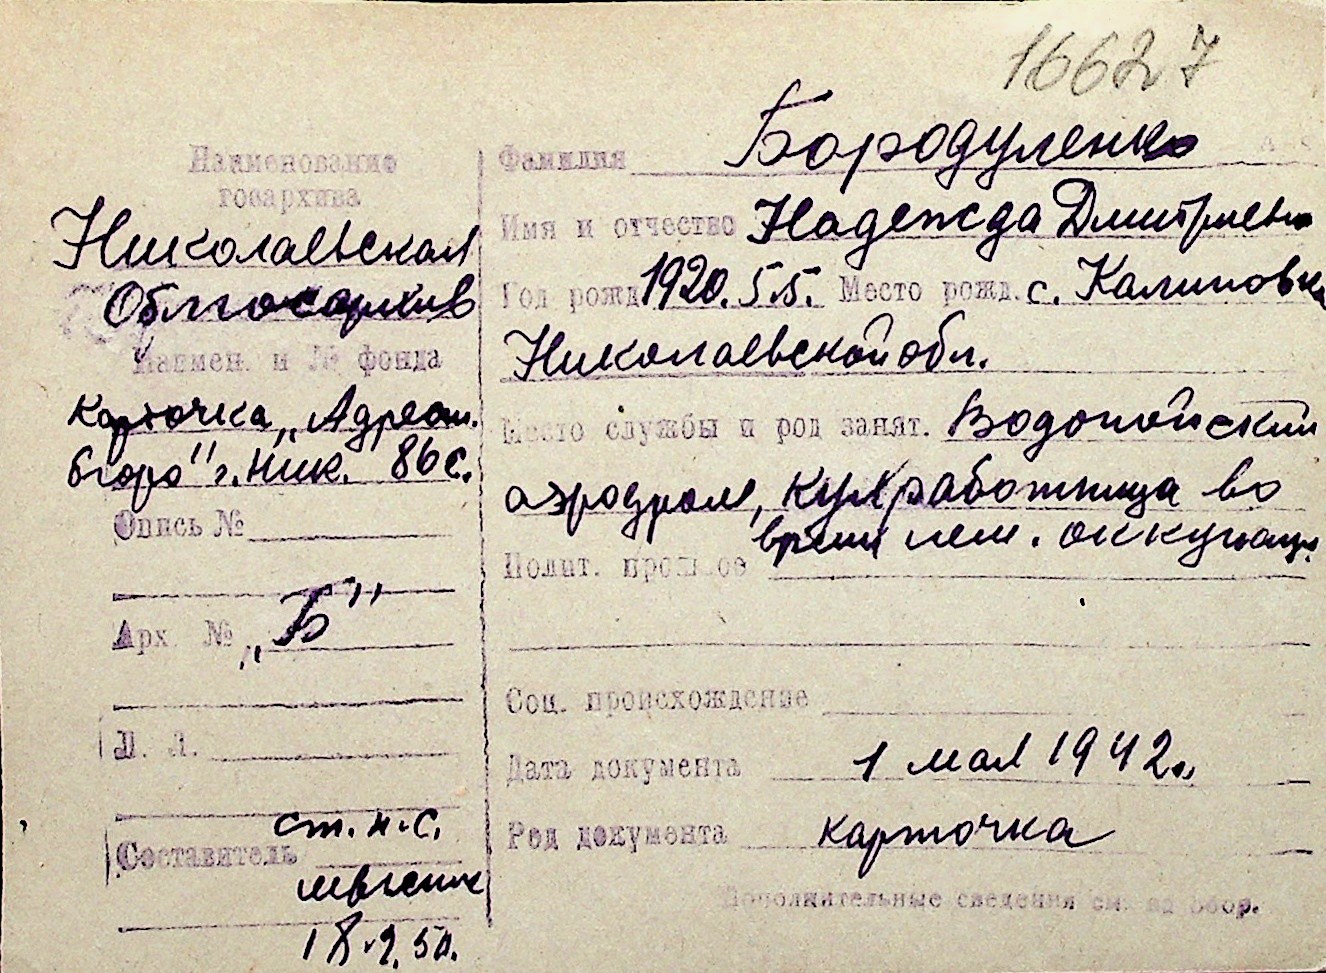 16627
Наименование
госархива
Николаевская
Облгосархив
Наимен. и № фонда
карточка „Адресн.
бюро" г. Ник. 86 с.
Опись №
Арх №
„Б"
Л. Л.
ст. н.с.
Составитель
18.9.50.
Фамилия Бородуленко
Имя и отчество Надежда Дмитриевна
Год рожд 1920. 5.5. Место рожд. с. Калиновка
Николаевской обл.
Место службы и род занят. Водопойский
аэродром, кухработница во
время нем. оккупац.
Полит. прошлое
Соц. происхождение
Дата документа 1 мая 1942 г.
Род документа карточка
Дополнительные сведения см. на обор.